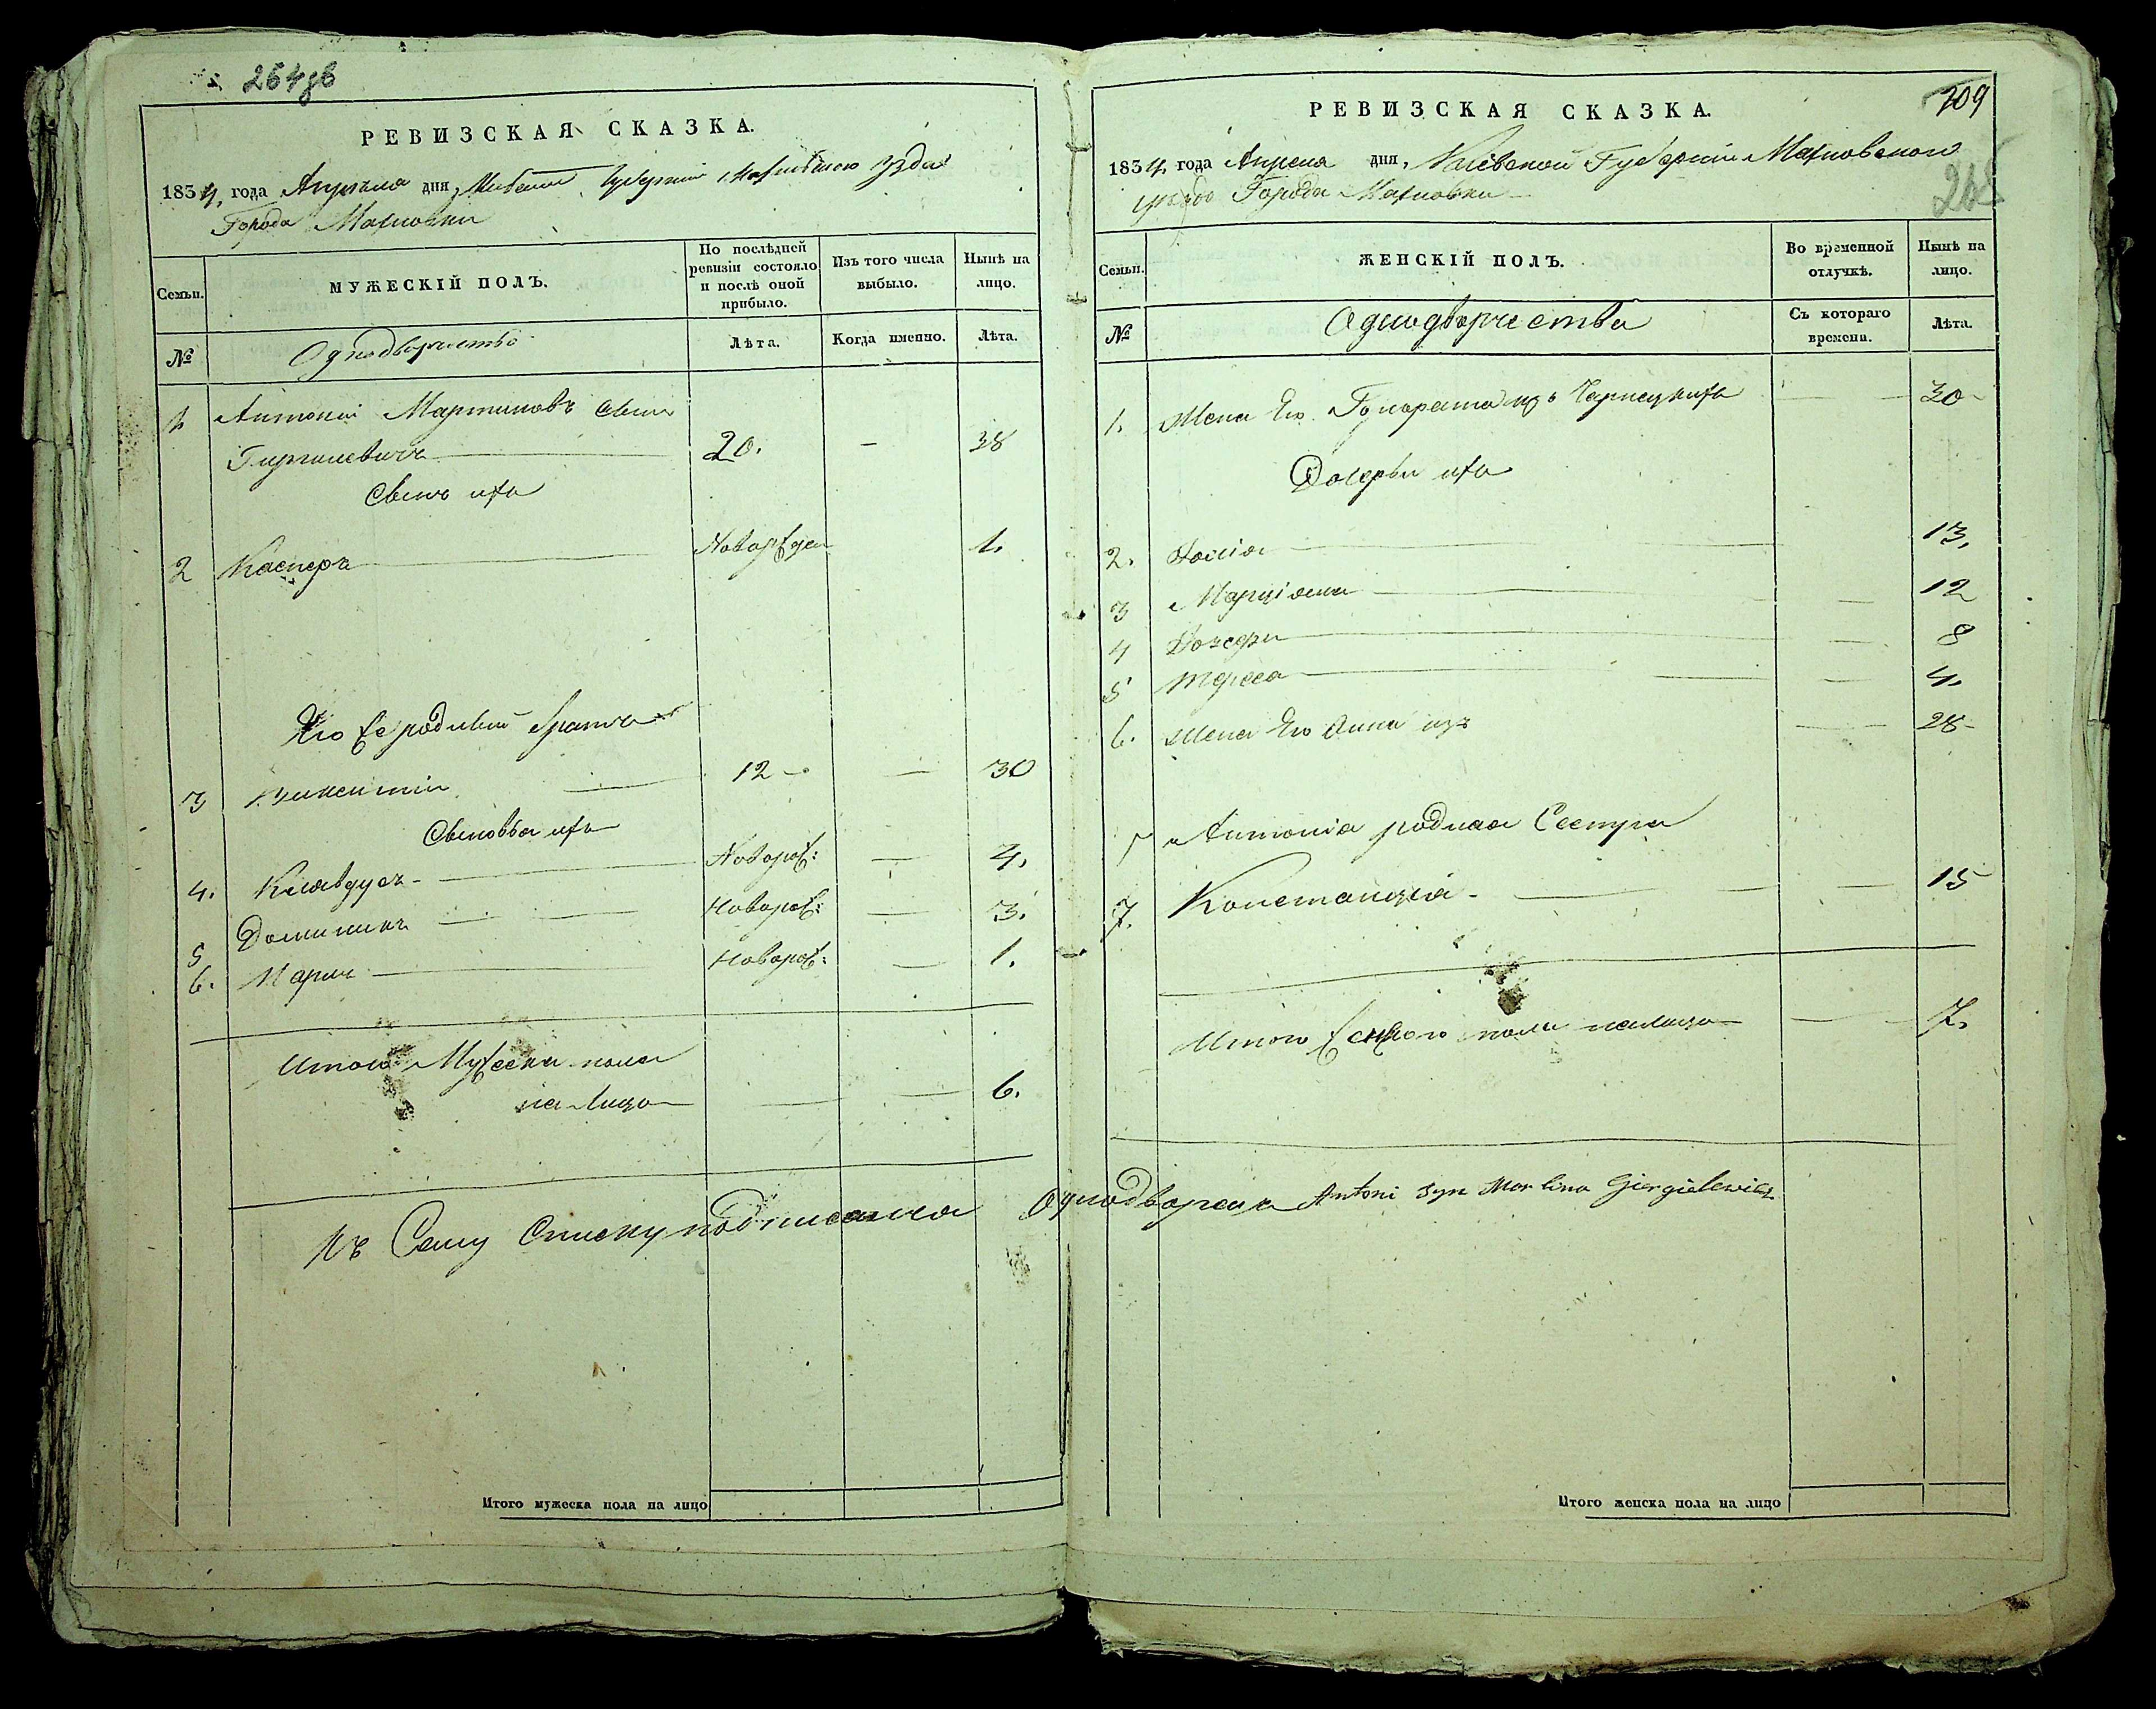 264
РЕВИЗСКАЯ СКАЗКА.
1834, года Апреля дня, Киевской Губернии Махновского уезда
Города Махновки
Семьи.
МУЖЕСКІЙ ПОЛЪ.
По послѣдней ревизіи состояло и послѣ оной прибыло.
Изъ того числа выбыло.
Нынѣ на лицо.
№
Однодворчество
Лѣта.
Когда именно.
Лѣта.
1 Антоній Мартиновъ Сынъ
Гиргилевичъ 20. — 38
Сынъ ихъ
2 Касперъ Новорожден 1.
Его жеродный братъ
3 Викентій 12 — — 30
Сыновья ихъ
4. Клавдусъ Новорож: — 4.
5 Доминикъ Новорож: — 3.
6. Марин Новорож: — 1.
Итого Мужеска пола
на лицо — — 6.
Къ Сему Списку подписался Однодворецъ Antoni syn Marcina Giergielewicz
Итого мужеска пола на лицо
209
РЕВИЗСКАЯ СКАЗКА.
1834, года Апреля дня, Киевской Губерніи Махновского
уезда Города Махновки
Семьи.
ЖЕНСКІЙ ПОЛЪ.
Во временной отлучкѣ.
Нынѣ на лицо.
№
Однодворчества
Съ котораго времени.
Лѣта.
1. Жена Его Гонората изъ Чарнецкихъ — 30
Дочерьи ихъ
2. 13.
3 Марціяна — 12
4 — 8
5 Тереса — 4.
6. Жена Его Анна изъ — 28
Антонія родная Сестра
7. Констанція — 15
Итого женского пола налицо — 7.
Итого женска пола на лицо